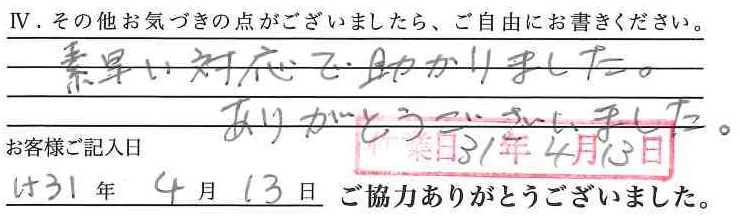 Ⅳ．その他お気づきの点がございましたら、ご自由にお書きください。
素早い対応で助かりました。
ありがとうございました。
お客様ご記入日
業日31年4月13日
H31年 4月 13日 ご協力ありがとうございました。